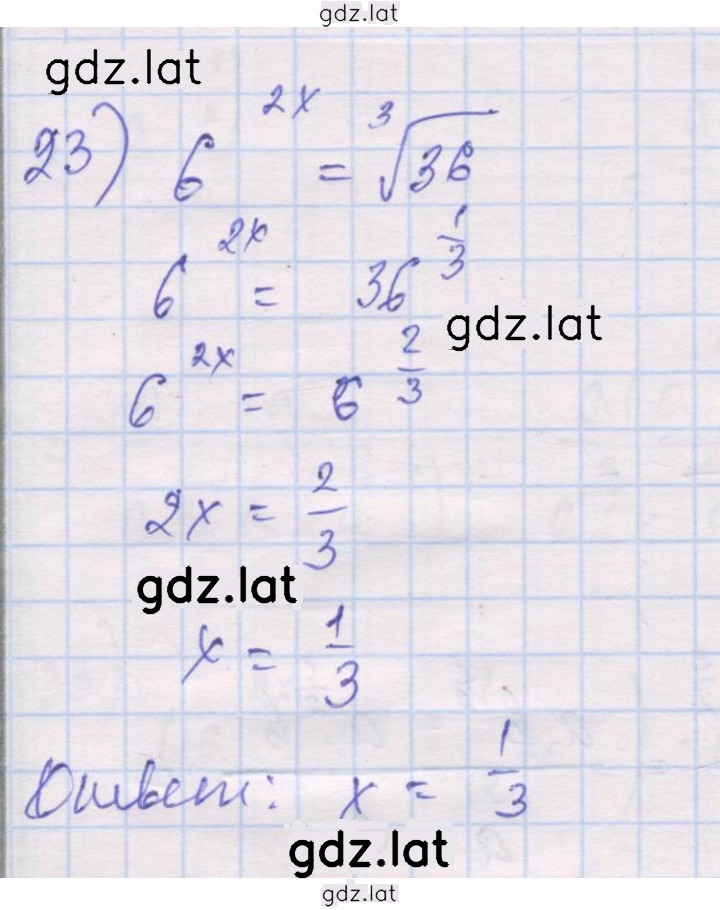 gdz.lat
gdz.lat
23) 6^{2x} = ∛36
6^{2x} = 36^{1/3}
gdz.lat
6^{2x} = 6^{2/3}
2x = 2/3
gdz.lat
x = 1/3
Ответ: x = 1/3
gdz.lat
gdz.lat